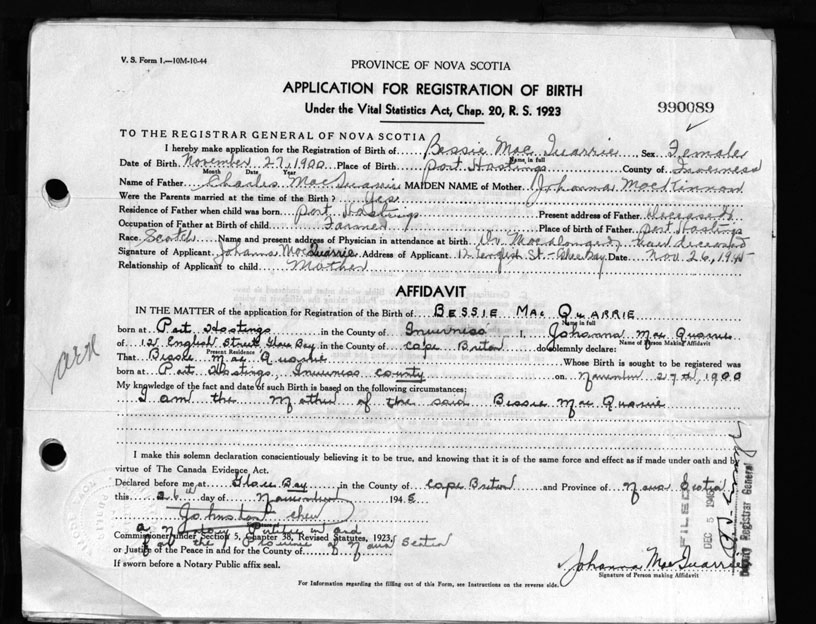 V. S. Form 1.—10M-10-44
PROVINCE OF NOVA SCOTIA
APPLICATION FOR REGISTRATION OF BIRTH
Under the Vital Statistics Act, Chap. 20, R. S. 1923
990089
TO THE REGISTRAR GENERAL OF NOVA SCOTIA
I hereby make application for the Registration of Birth of Bessie Mac Quarrie Sex Female
Name in full
Date of Birth November 27, 1900 Place of Birth Port Hastings County of Inverness
Month Date Year
Name of Father Charles MacQuarrie MAIDEN NAME of Mother Johanna MacKinnon
Were the Parents married at time of the Birth? Yes
Residence of Father when child was born Port Hastings Present address of Father deceased
Occupation of Father at Birth of Child Farmer Place of birth of Father Port Hastings
Race Scotch Name and present address of Physician in attendance at birth Dr. deceased
Signature of Applicant Johanna MacQuarrie Address of Applicant 12 English St - Glace Bay Date Nov 26, 1945
Relationship of Applicant to child Mother
AFFIDAVIT
IN THE MATTER of the application for Registration of the Birth of BESSIE MAC QUARRIE
Name in full
born at Port Hastings in the County of Inverness I, Johanna Mac Quarrie
Name of Person making Affidavit
of 12 English Street Glace Bay in the County of Cape Breton do solemnly declare:
Present Residence
That Bessie Mac Quarrie Whose Birth is sought to be registered was
born at Port Hastings, Inverness County on November 27th, 1900
My knowledge of the fact and date of such Birth is based on the following circumstances:
I am the Mother of the said Bessie Mac Quarrie
I make this solemn declaration conscientiously believing it to be true, and knowing that it is of the same force and effect as if made under oath and by
virtue of The Canada Evidence Act.
Declared before me at Glace Bay in the County of Cape Breton and Province of Nova Scotia
this 26th day of November 1945
a Notary Public in and
Commissioner under Section 5, Chapter 38, Revised Statutes, 1923,
for the Province of Nova Scotia
or Justice of the Peace in and for the County of
If sworn before a Notary Public affix seal.
Johanna MacQuarrie
Signature of Person making Affidavit
For Information regarding the filling out of this Form, see Instructions on the reverse side.
FILED
DEC 5 1945
Deputy Registrar General